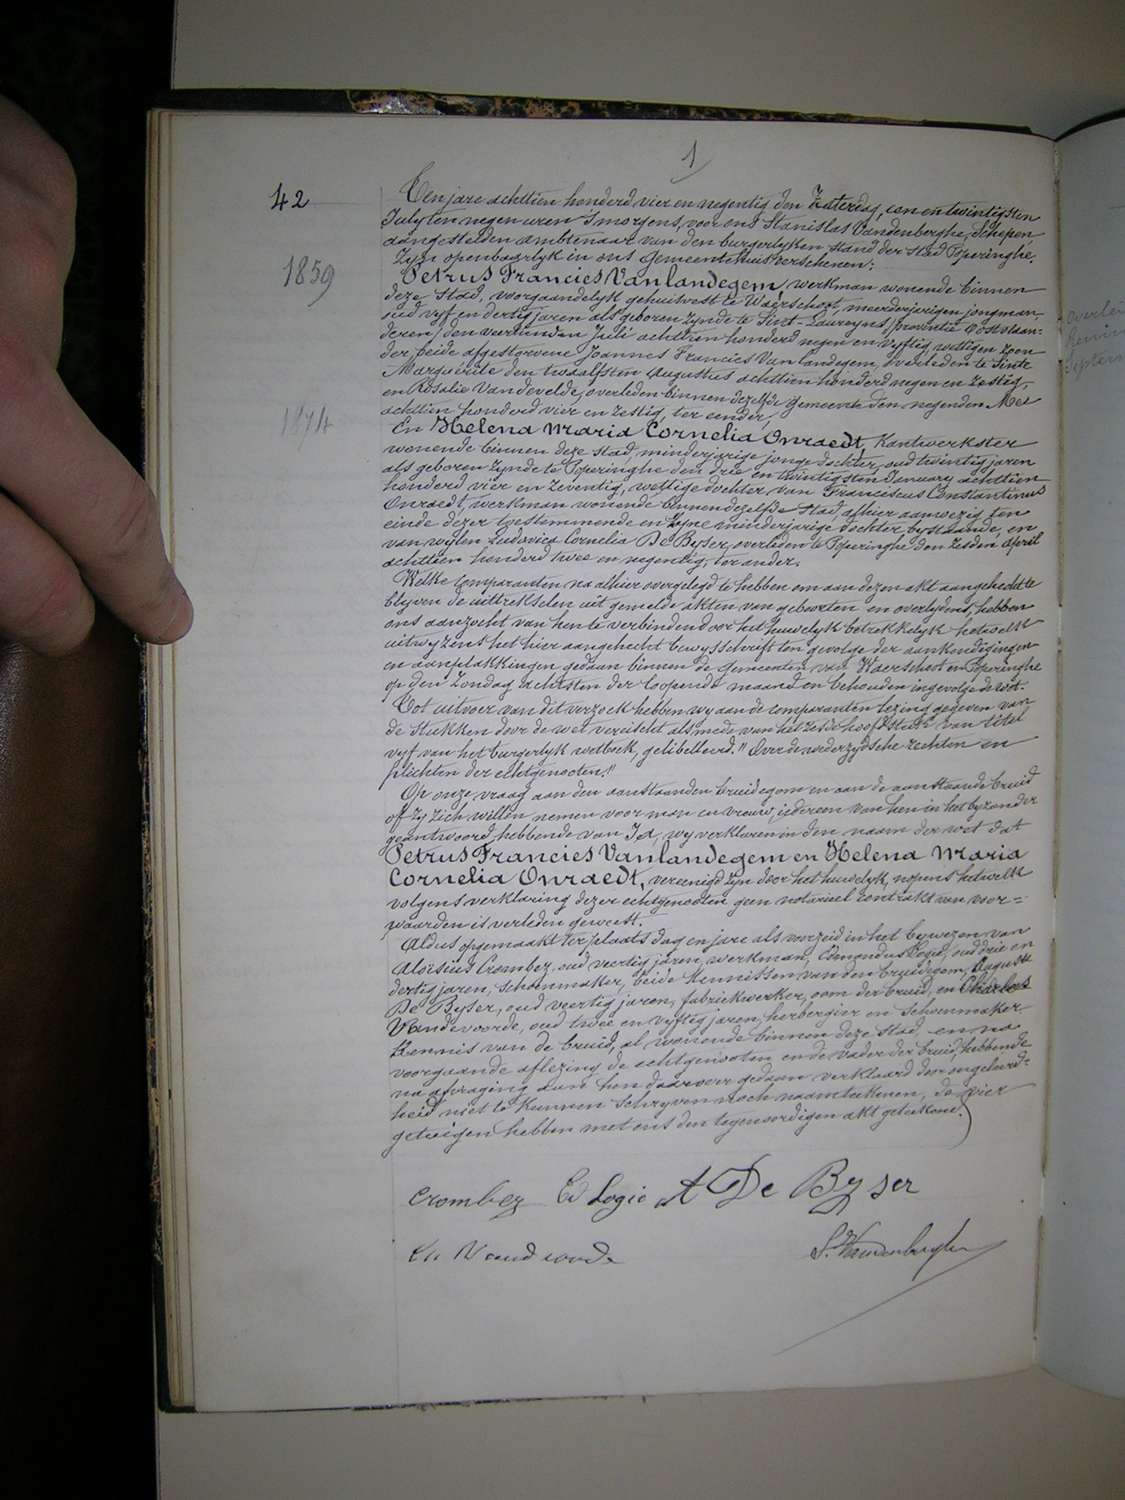 1
42
Ten jare achttien honderd vier en negentig den Zaterdag, een en twintigsten
July ten negen uren 's morgens, voor ons Stanislas Vandenberghe, Schepen
aangestelden ambtenaar van den burgerlyken stand der stad Poperinghe,
Zyn openbaarlyk in ons gemeentehuis verschenen:
1859
Petrus Francies Vanlandegem, werkman wonende binnen
deze Stad, voorgaandelyk gehuisvest te Waerschoot, meerderjarigen jongman,
oud vyf en dertig jaren als geboren zynde te Sint-Laureyns (provintie Oostvlaan-
deren) den Juli achttien honderd negen en vyftig wettigen zoon
der beide afgestorvene Joannes Francies Vanlandegem, overleden te Sinte
Marguerite den twaalfsten Augustus achttien honderd negen en zestig,
en Rosalie Vandevelde, overleden binnen dezelfde gemeente den negenden Mei
achttien honderd vier en zestig, ter eender,
1874
En Helena Maria Cornelia Onraedt, Kantwerkster
wonende binnen deze stad, minderjarige jonge dochter, oud twintig jaren
als geboren zynde te Poperinghe den drie en twintigsten January achttien
honderd vier en zeventig, wettige dochter van Franciscus Constantinus
Onraedt, werkman wonende binnen dezelfde stad, alhier aanwezig ten
einde dezer toestemmende en zyne minderjarige dochter bystaande, en
van wylen Ludovica Cornelia De Byser, overleden te Poperinghe den zesden April
achttien honderd twee en negentig, ter ander.
Welke comparanten na alhier overgelegd te hebben om aan dezen akt aangehecht te
blyven de uittrekselen uit gemelde akten van geboorten en overlydens, hebben
ons aanzocht van hen te verbinden door het huwelyk betrekkelyk hetwelk
uitwyzens het hier aangehecht bewysschrift ten gevolge der aankondigingen
en aanplakkingen gedaan binnen de gemeenten van Waerschoot en Poperinghe
op den Zondag achtsten der loopende maand en behouden ingevolge de wet.
Tot uitvoer van dit verzoek hebben wy aan de comparanten lezing gegeven van
de Stukken door de wet vereischt alsmede van het zesde hoofdstuk van titel
vyf van het burgerlyk wetboek, gelibelleerd. "Over de wederzydsche rechten en
plichten der echtgenooten."
Op onze vraag aan den aanstaanden bruidegom en aan de aanstaande bruid
of Zy zich willen nemen voor man en vrouw, iedereen van hen in het byzonder
geantwoord hebbende van Ja, wy verklaren in den naam der wet dat
Petrus Francies Vanlandegem en Helena Maria
Cornelia Onraedt, vereenigd zyn door het huwelyk, nopens hetwelk
volgens verklaring dezer echtgenooten geen notarieel contrakt van voor=
waarden is verleden geweest.
Aldus opgemaakt ter plaats dag en jare als voorzeid in het bywezen van
Aloisius Crombez, oud veertig jaren, werkman, Edmondus Logie, oud drie en
dertig jaren, Schoenmaker, beide Kennissen van den bruidegom, August
De Byser, oud veertig jaren, fabriekwerker, oom der bruid, en Charles
Vandevoorde, oud twee en vyftig jaren, herbergier en Schoenmaker
Kennis van de bruid, al wonende binnen deze stad, en na
voorgaande aflezing de echtgenooten en de vader der bruid hebbende
na afvraging aan hen daarover gedaan verklaard door ongeleerd-
heid niet te kunnen schryven noch naamteekenen, de vier
getuigen hebben met ons den tegenwoordigen akt geteekend.
Crombez Ed Logie A De Byser
Vandevoorde S. Vandenberghe